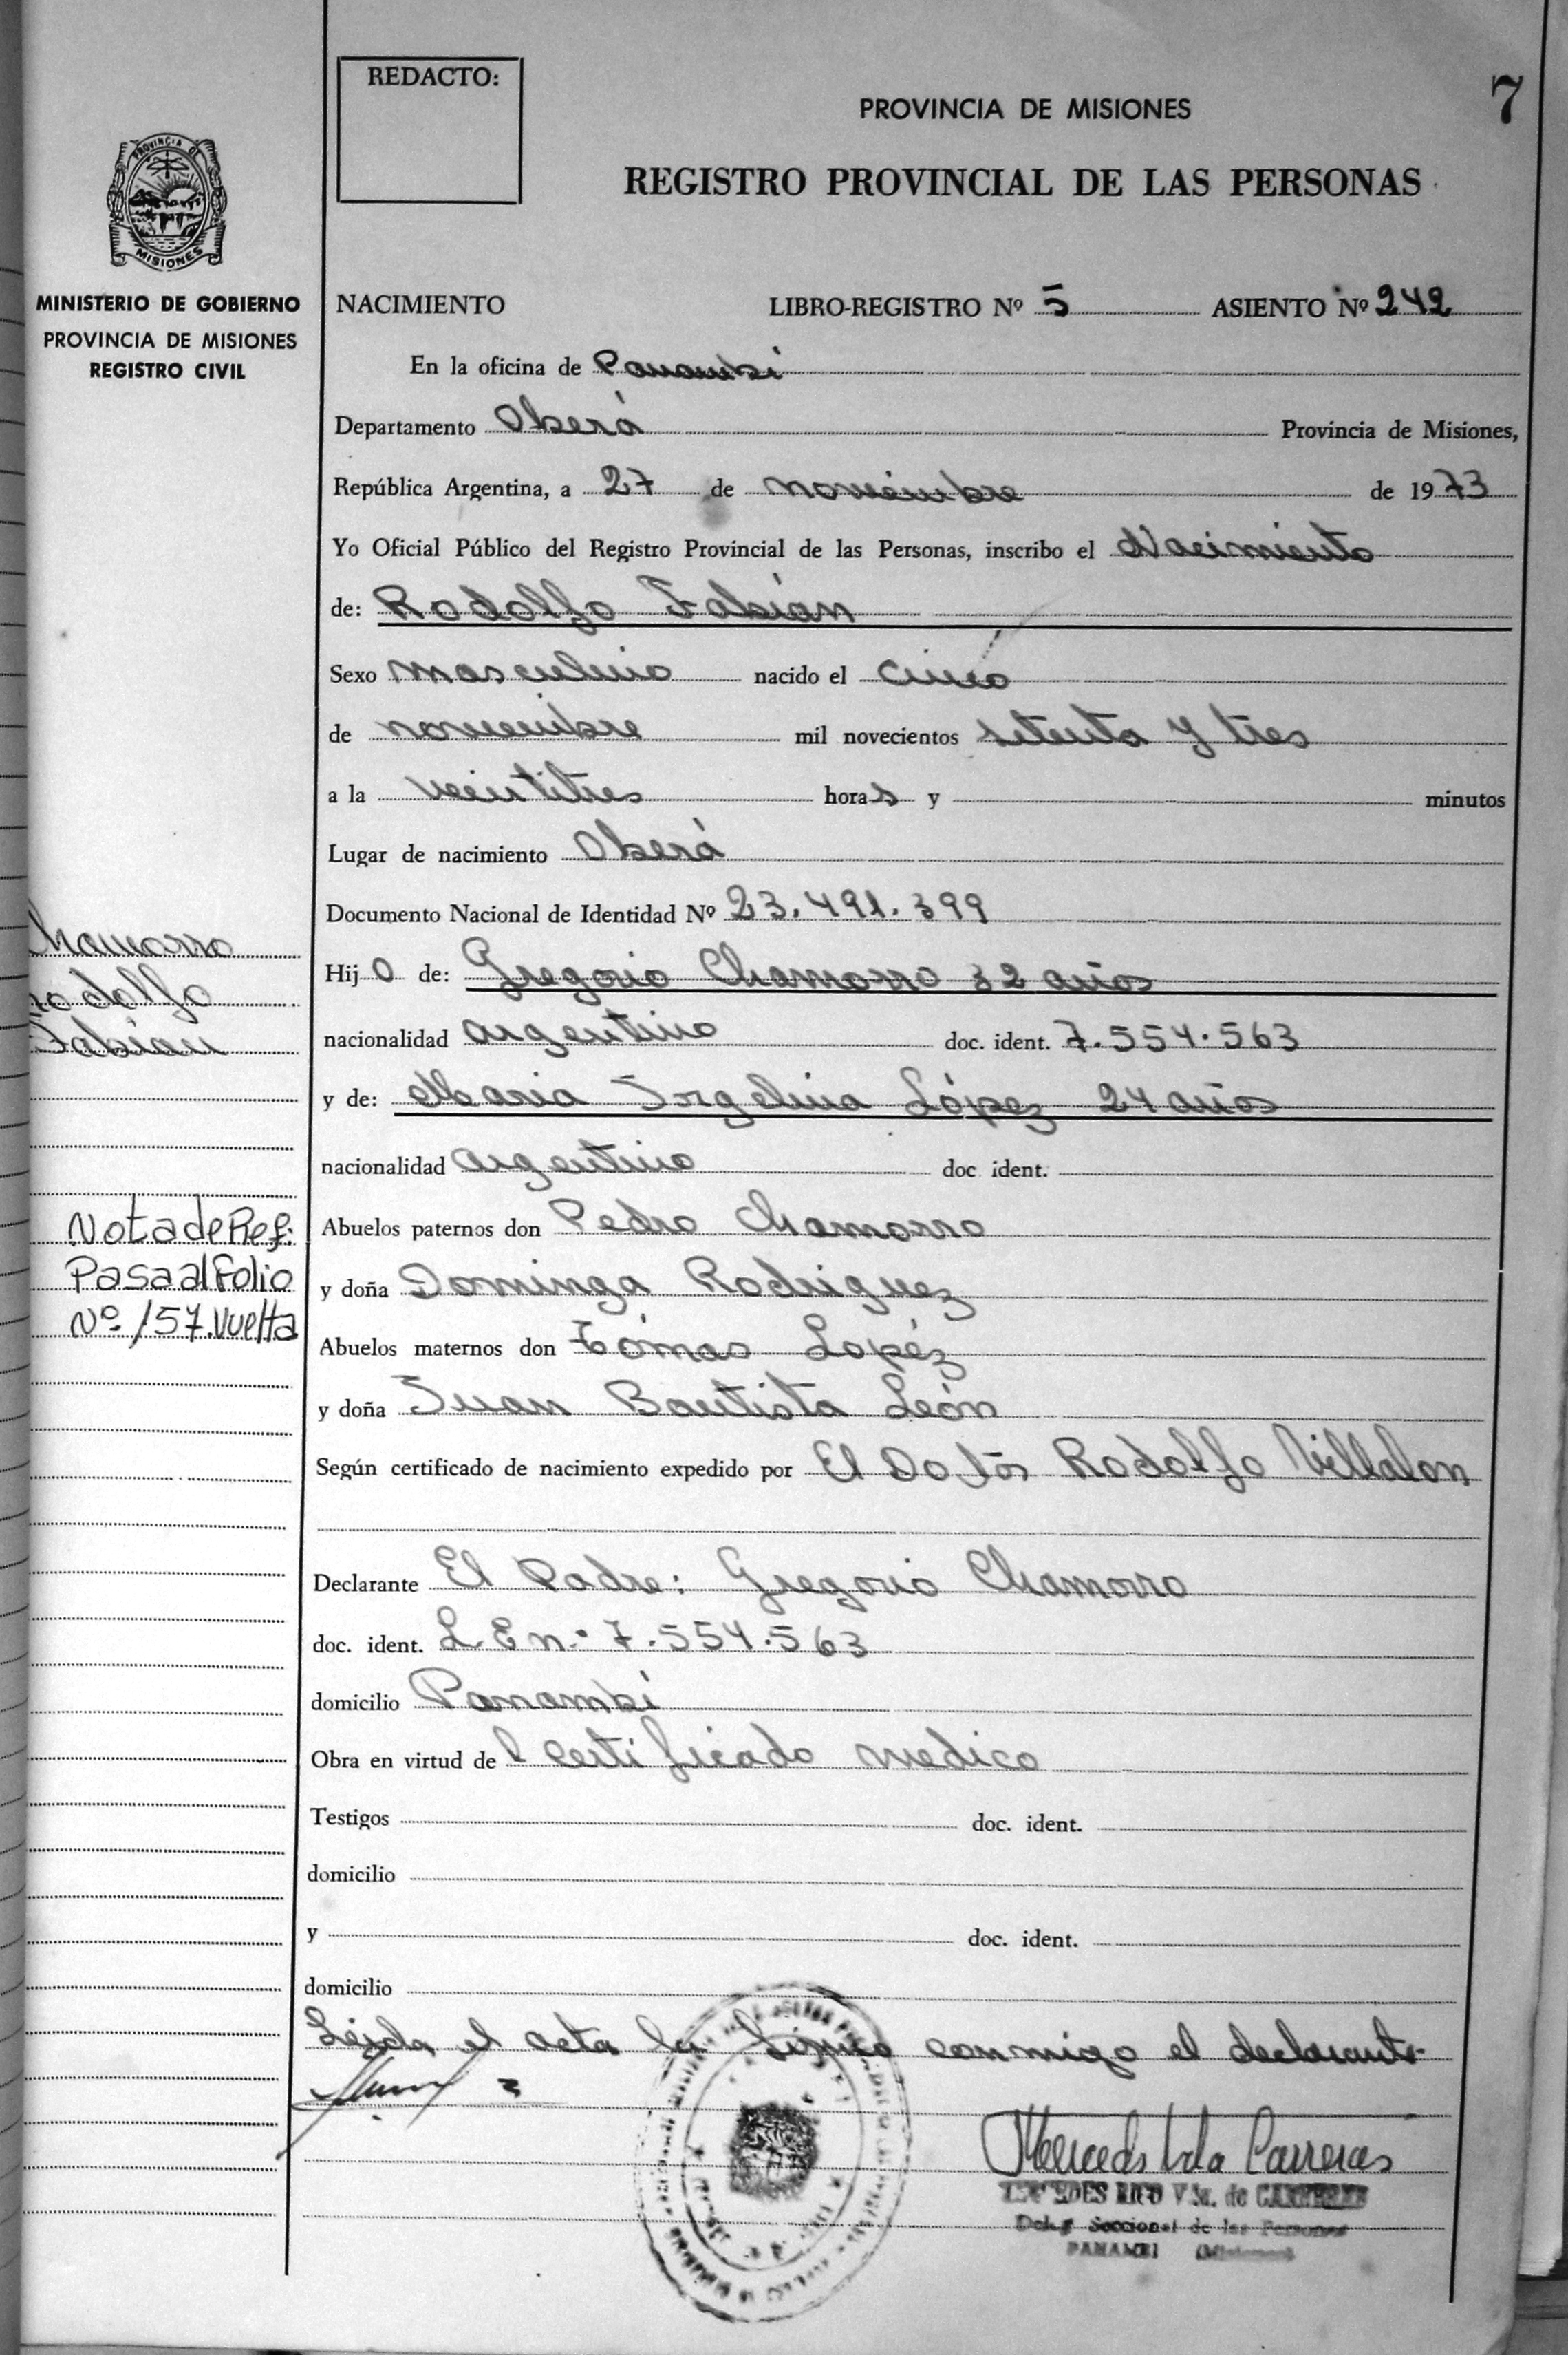 7
REDACTO:
PROVINCIA DE MISIONES
REGISTRO PROVINCIAL DE LAS PERSONAS
PROVINCIA DE
MISIONES
MINISTERIO DE GOBIERNO
PROVINCIA DE MISIONES
REGISTRO CIVIL
NACIMIENTO LIBRO-REGISTRO Nº 5 ASIENTO Nº 242
En la oficina de Panambí
Departamento Oberá Provincia de Misiones,
República Argentina, a 27 de noviembre de 1973
Yo Oficial Público del Registro Provincial de las Personas, inscribo el Nacimiento
de: Rodolfo Fabián
Sexo masculino nacido el cinco
de noviembre mil novecientos setenta y tres
a la veintitres horas y minutos
Lugar de nacimiento Oberá
Documento Nacional de Identidad Nº 23.491.399
Hijo de: Gregorio Chamorro 32 años
nacionalidad argentino doc. ident. 7.554.563
y de: Maria Irgelina López 24 años
nacionalidad argentino doc ident.
Abuelos paternos don Pedro Chamorro
y doña Dominga Rodriguez
Abuelos maternos don Tómas Lopéz
y doña Juan Bautista León
Según certificado de nacimiento expedido por El Doctor Rodolfo Villalon
Declarante El Padre: Gregorio Chamorro
doc. ident. L.E n.º 7.554.563
domicilio Panambí
Obra en virtud del certificado medico
Testigos doc. ident.
domicilio
y doc. ident.
domicilio
Leida el acta la firma conmigo el declarante
Mercedes Carreras
V da. de CARRERAS
Seccional de las Personas
PANAMBI (Misiones)
Chamorro
Rodolfo
Fabian
Nota de Ref:
Pasa al Folio
Nº 157.Vuelta